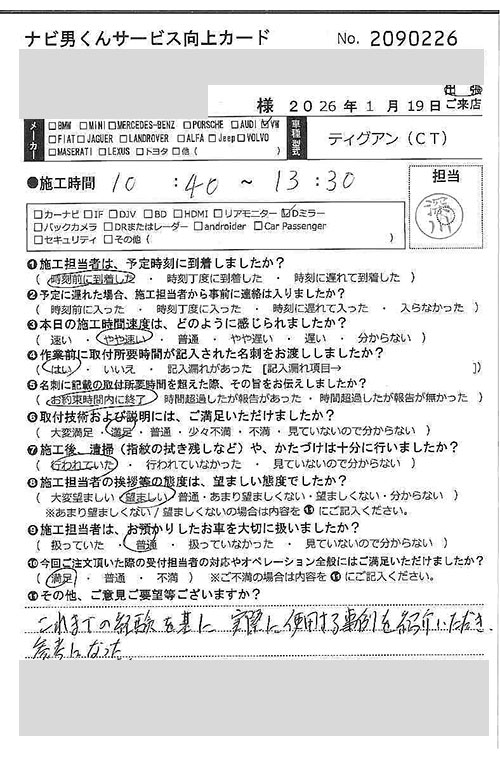 ナビ男くんサービス向上カード No. 2090226
出 張
様 2026年1月19日ご来店
メーカー □BMW □MINI □MERCEDES-BENZ □PORSCHE □AUDI ☑VW
□FIAT □JAGUER □LANDROVER □ALFA □Jeep □VOLVO
□MASERATI □LEXUS □トヨタ □他 ( )
車種型式 ティグアン(CT)
●施工時間 10 : 40 ~ 13 : 30
担当
□カーナビ □IF □DJV □BD □HDMI □リアモニター ☑Dミラー
□バックカメラ □DRまたはレーダー □androider □Car Passenger
□セキュリティ □その他 ( )
❶施工担当者は、予定時刻に到着しましたか?
( 時刻前に到着した ・ 時刻丁度に到着した ・ 時刻に遅れて到着した )
❷予定に遅れた場合、施工担当者から事前に連絡は入りましたか?
( 時刻前に入った ・ 時刻丁度に入った ・ 時刻に遅れて入った ・ 入らなかった )
❸本日の施工時間速度は、どのように感じられましたか?
( 速い ・ やや速い ・ 普通 ・ やや遅い ・ 遅い ・ 分からない )
❹作業前に取付所要時間が記入された名刺をお渡ししましたか?
( はい ・ いいえ ・ 記入漏れがあった [記入漏れ項目→ ])
❺名刺に記載の取付所要時間を超えた際、その旨をお伝えしましたか?
( お約束時間内に終了 ・ 時間超過したが報告があった ・ 時間超過したが報告が無かった )
❻取付技術および説明には、ご満足いただけましたか?
( 大変満足 ・ 満足 ・ 普通 ・ 少々不満 ・ 不満 ・ 見ていないので分からない )
❼施工後、清掃(指紋の拭き残しなど)や、かたづけは十分に行いましたか?
( 行われていた ・ 行われていなかった ・ 見ていないので分からない )
❽施工担当者の挨拶等の態度は、望ましい態度でしたか?
( 大変望ましい ・ 望ましい ・ 普通・あまり望ましくない・望ましくない・分からない )
※あまり望ましくない/望ましくないの場合は内容を⓫にご記入ください。
❾施工担当者は、お預かりしたお車を大切に扱いましたか?
( 扱っていた ・ 普通 ・ 扱っていなかった ・ 見ていないので分からない )
❿今回ご注文頂いた際の受付担当者の対応やオペレーション全般にはご満足いただけましたか?
( 満足 ・ 普通 ・ 不満 ) ※ご不満の場合は内容を⓫にご記入ください。
⓫その他、ご意見ご要望等ございますか?
これまでの経験を基に 実際に使用する事例を紹介いただき、
参考になった。